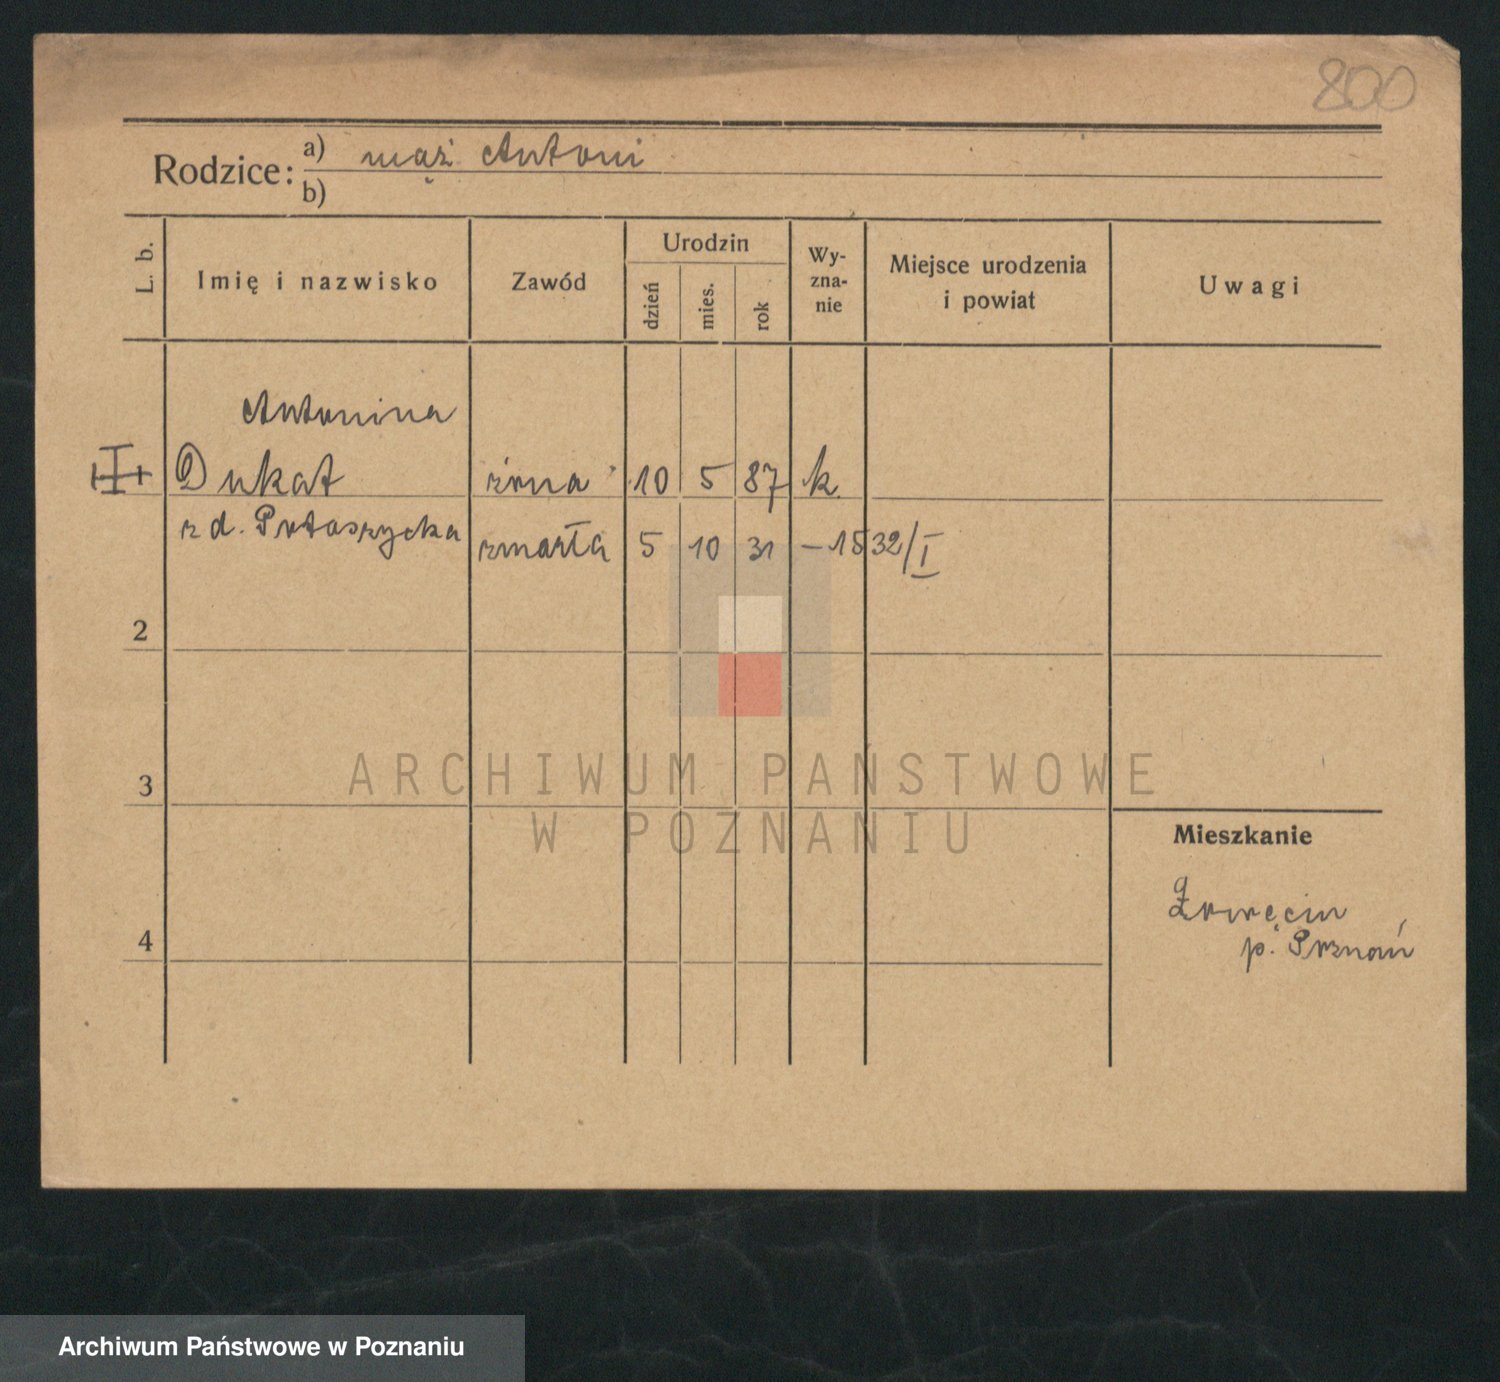 800
Rodzice: a) mąż Antoni
b)
L. b.
Imię i nazwisko
Zawód
Urodzin
dzień
mies.
rok
Wy-
zna-
nie
Miejsce urodzenia
i powiat
Uwagi
Antonina
Dukat żona 10 5 87 k.
z d. Potaszycka zmarła 5 10 31 – 1532/I
2
3
4
Mieszkanie
p. Poznań
ARCHIWUM PAŃSTWOWE
W POZNANIU
Archiwum Państwowe w Poznaniu